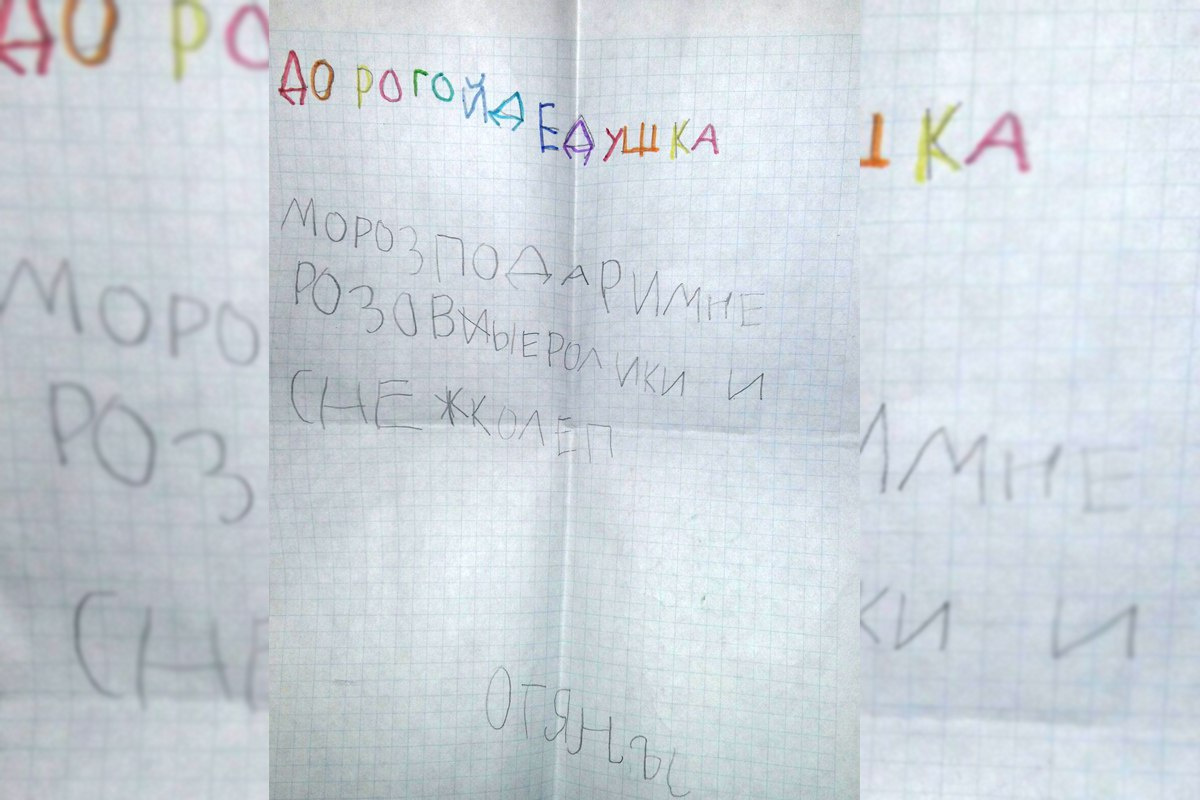 ДО РОГОЙДЕДУШКА
МОРОЗПОДАРИМНЕ
РОЗОВЫЕРОЛИКИ И
СНЕЖКОЛЕП
ОТЯНЫ